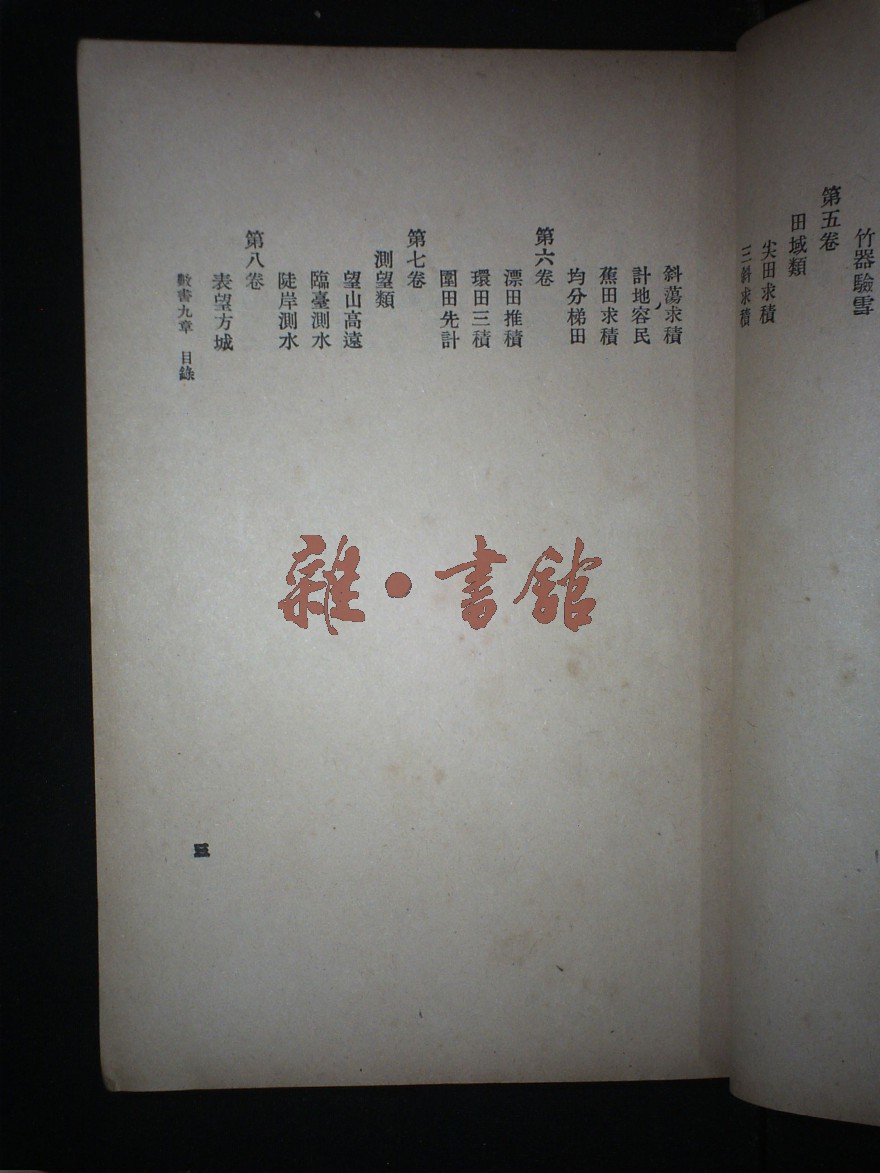 竹器驗雪
第五卷
田域類
尖田求積
三斜求積
斜蕩求積
計地容民
蕉田求積
均分梯田
第六卷
漂田推積
環田三積
圍田先計
第七卷
測望類
望山高遠
臨臺測水
陡岸測水
第八卷
表望方城
數書九章 目錄
三
雜·書館